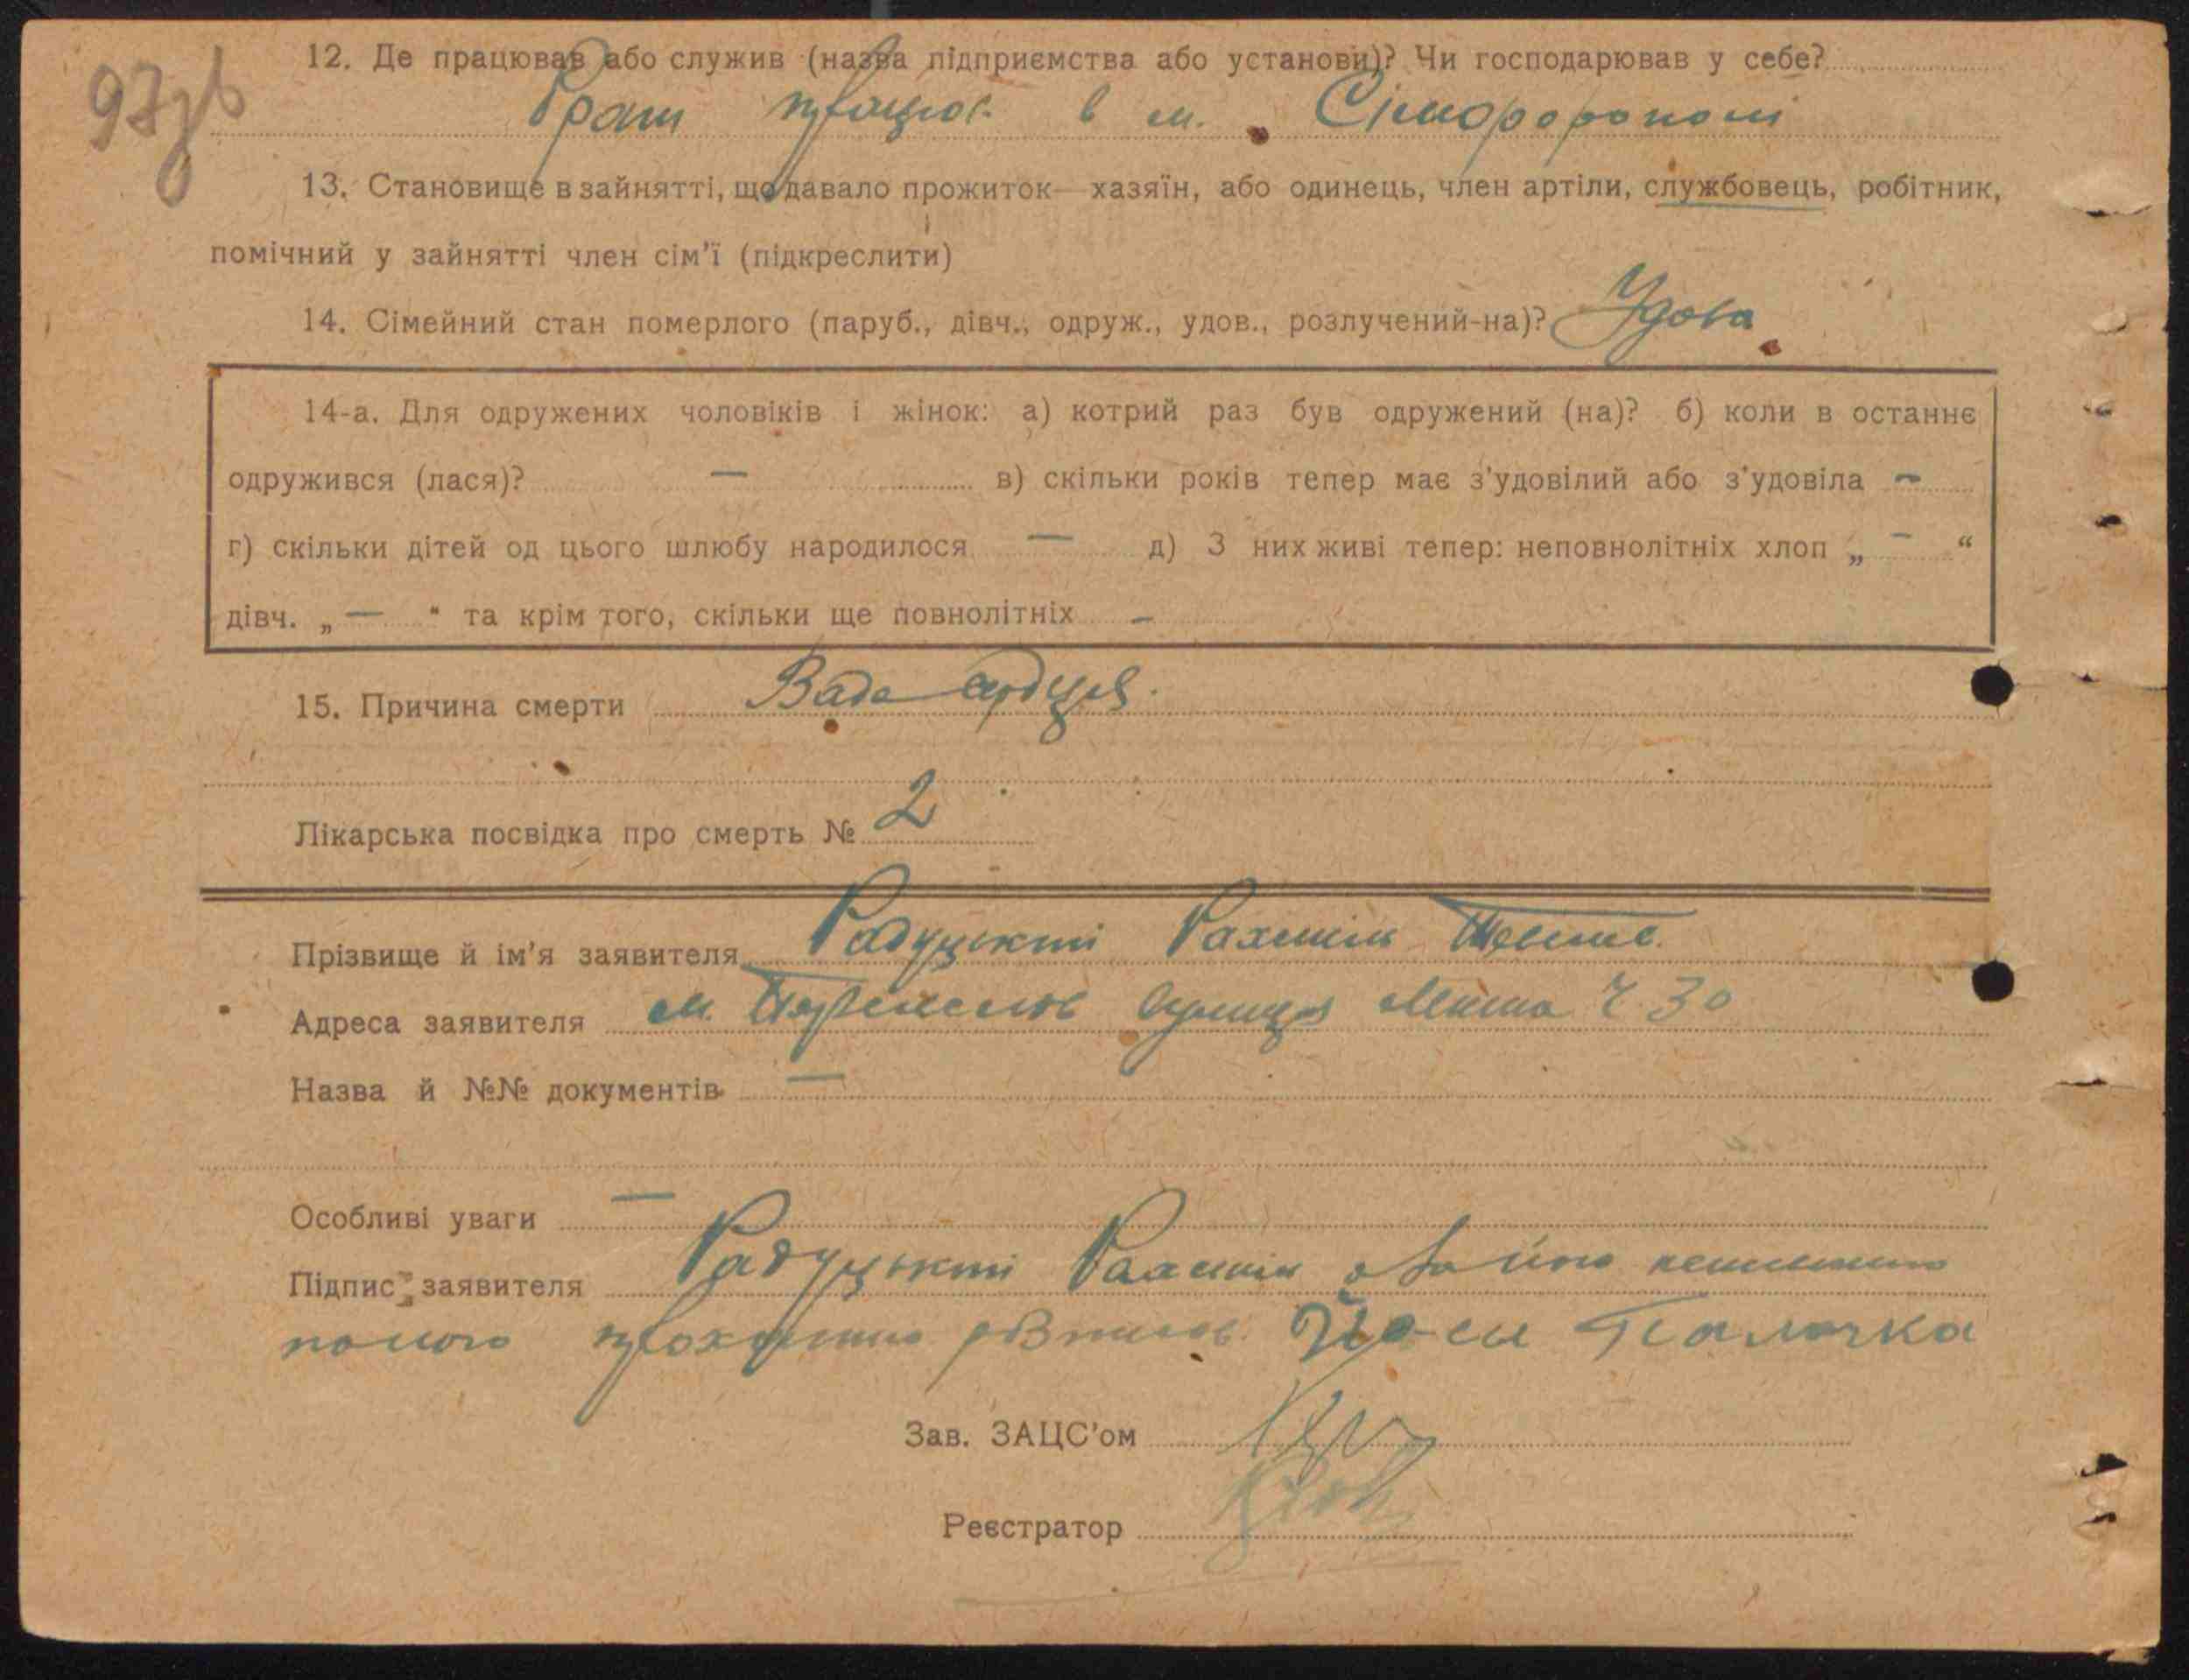 97зв
12. Де працював або служив (назва підприємства або установи)? Чи господарював у себе?
Брат працює в м. Сімферополі
13. Становище в зайнятті, що давало прожиток — хазяїн, або одинець, член артіли, службовець, робітник,
помічний у зайнятті член сім'ї (підкреслити)
14. Сімейний стан померлого (паруб., дівч., одруж., удов., розлучений-на)? Удова
14-а. Для одружених чоловіків і жінок: а) котрий раз був одружений (на)? б) коли в останнє
одружився (лася)? — в) скільки років тепер має з'удовілий або з'удовіла —
г) скільки дітей од цього шлюбу народилося — д) З них живі тепер: неповнолітніх хлоп „ — “
дівч. „ — “ та крім того, скільки ще повнолітніх —
15. Причина смерти Вада серця.
Лікарська посвідка про смерть № 2
Прізвище й ім'я заявителя Радуцький Рахмиль
Адреса заявителя м. вулиця Ч 30
Назва й №№ документів —
Особливі уваги —
Підпис заявителя Радуцький Рахмиль а за його неписьмен
Палочка
Зав. ЗАЦС'ом
Реєстратор